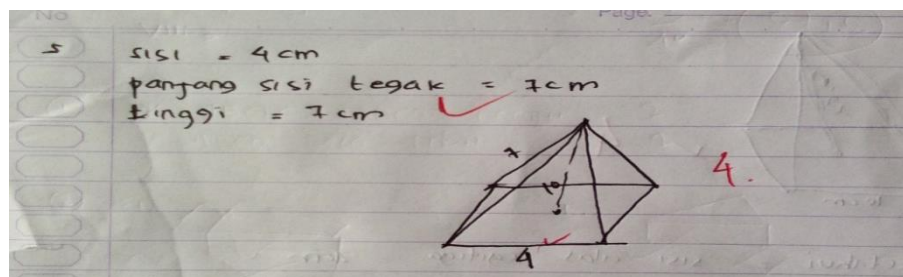 No
Page:
5 sisi = 4 cm
panjang sisi tegak = 7 cm
tinggi = 7 cm
7
10
4.
4